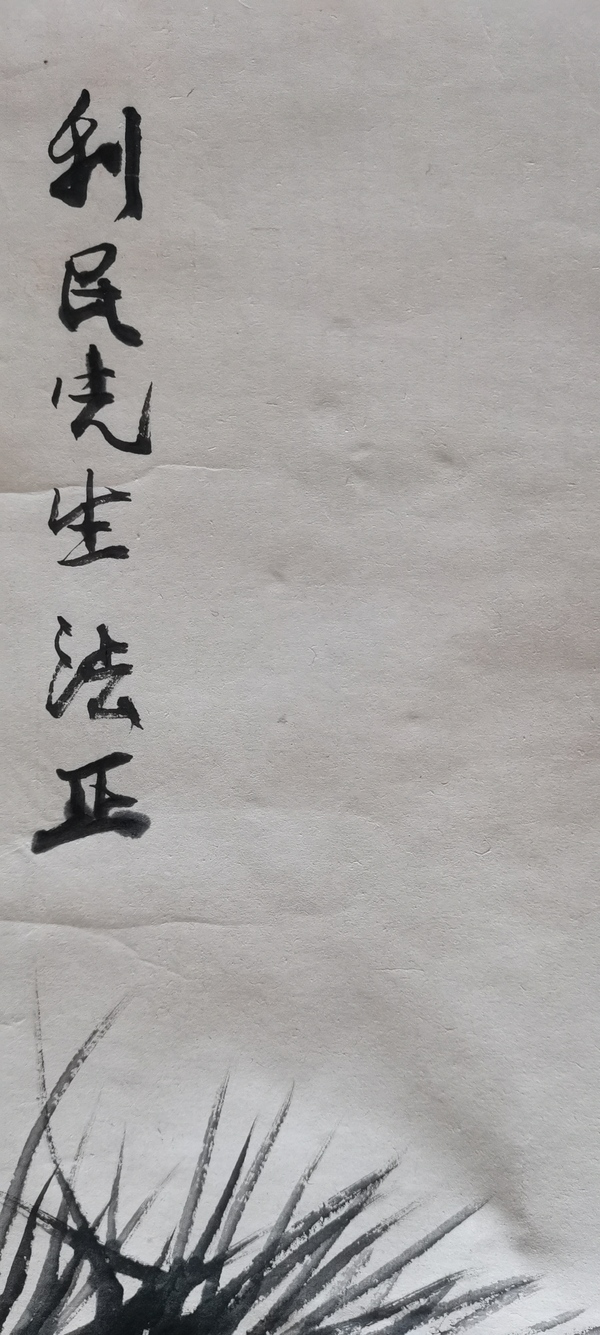 利民先生法正